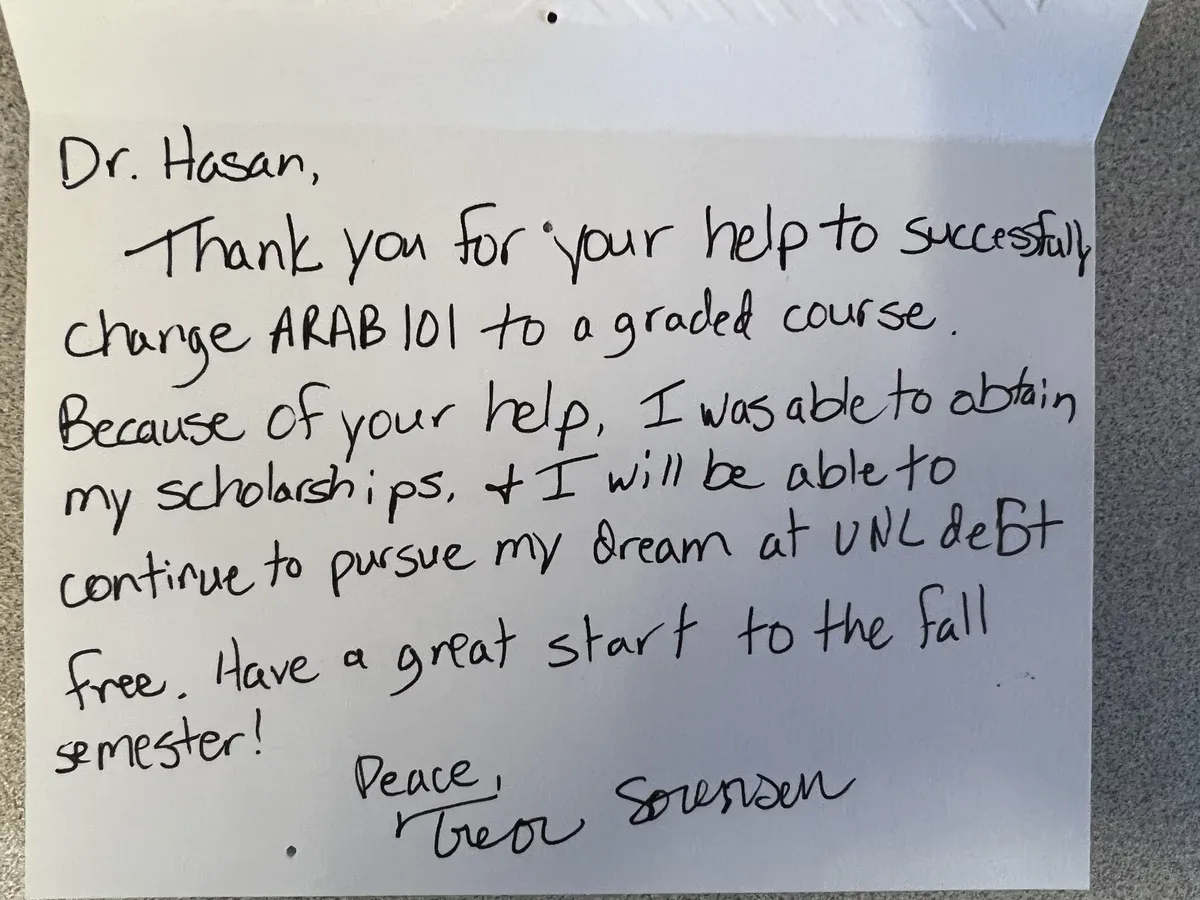 Dr. Hasan,
Thank you for your help to successfully
change ARAB 101 to a graded course.
Because of your help, I was able to obtain
my scholarships, + I will be able to
continue to pursue my dream at UNL debt
free. Have a great start to the fall
semester!
Peace,
Trevor Sorensen